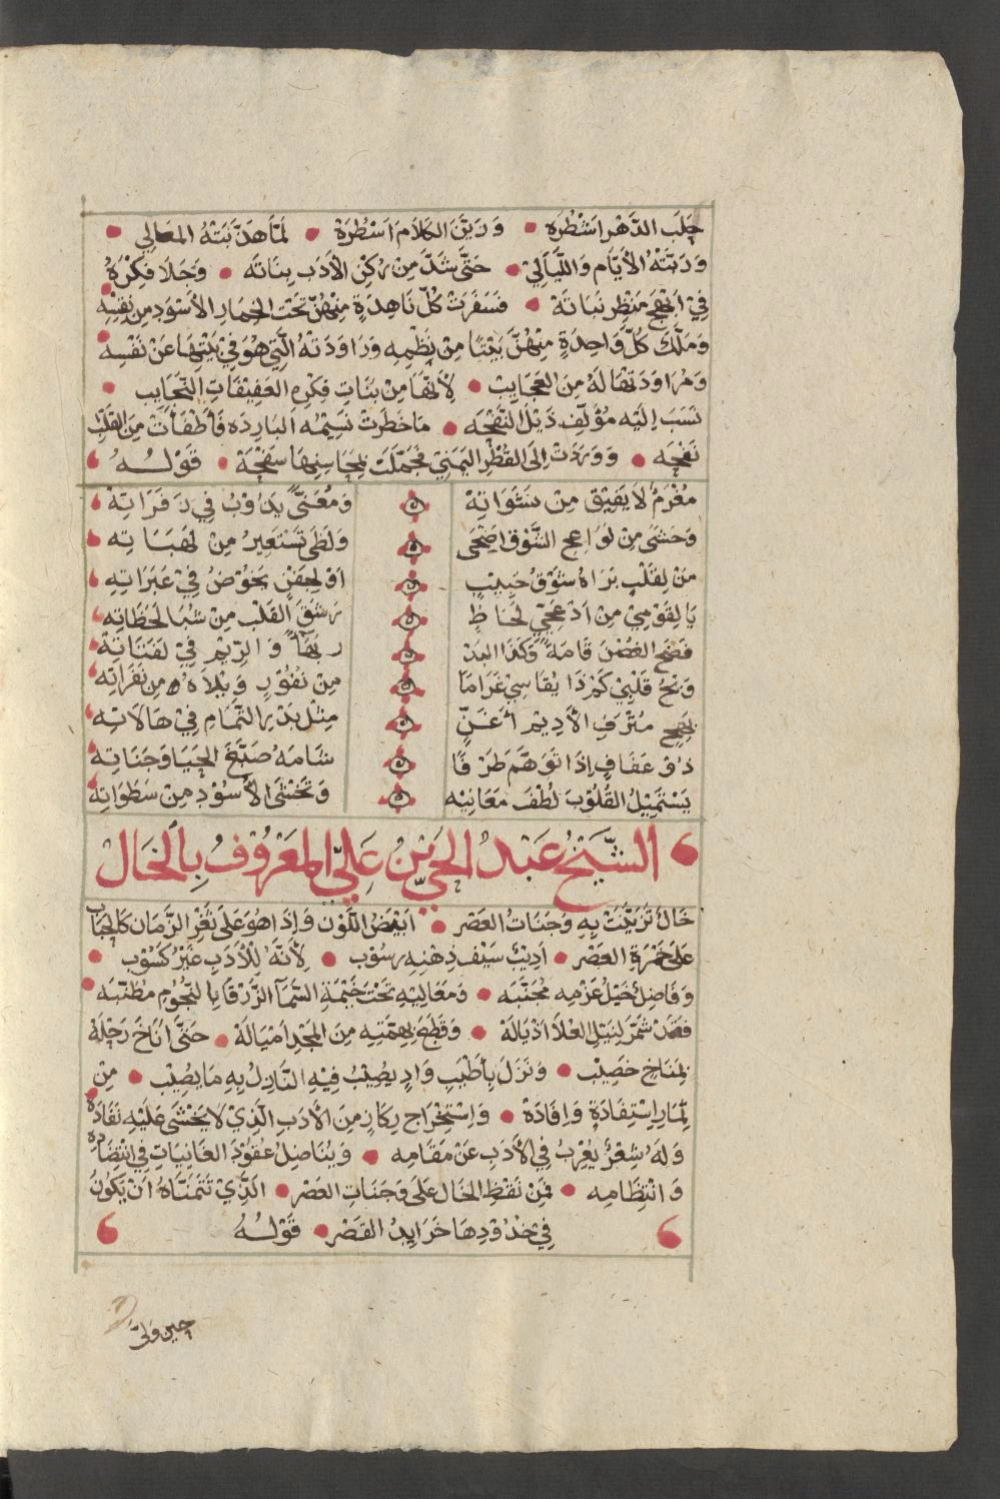 حَلَبَ الدَّهْر اَشْطُرَهْ • وَرَتَّقَ الكَلَام اَسْطُرَهْ • لَمَّا هَذَّبَتْهُ المعَالِي •
وَرَبَّتْهُ الأيَّام وَاللَّيَالِيْ • حَتَّى شَدَّ مِنْ رُكْنِ الأدَب بِنَانَه • وَجَلَا فِكْرَهُ
فِيْ اَبْهَجِ مَنْظِر نَبَاتَهْ • فَسَفَرَتْ كُلّ نَاهِدَةٍ مِنْهُنّ تَحْت الخِمَارِ الأسْوَد مِنْ نِقْسِه •
وَمَلَّكَ كُلَّ وَاحِدَةٍ مِنْهُنَّ بَيْتًا مِنْ نَظْمِه وَرَاوَدَتْهُ الَّتِي هُوَ فِيْ بَيْتِهَا عَنْ نَفْسِه •
وَمُرَاوَدَتهَا لَهُ مِنَ العَجَايِبْ • لِأنّهَا مِنْ بَنَاتِ فِكْرِه العَفِيْفَاتِ النَّجَايِب •
نَسَبَ اِلَيْه مُؤَلِّف ذَيْلَ النَّفْحَه • مَا خَطَرَتْ نَسِيْمُه البَارِدَه فَأَطْفَأَتْ مِنَ القَلْبِ
نَفْحَه • وَوَرَدَتْ اِلَى القُطْرِ اليَمَنِيْ فَجَمَّلَتْ بِمَحَاسِنِهَا سَفْحَهْ • قَوْلُــهُ
مُغْرَمٌ لَا يَفِيْق مِنْ نَشَوَاتِهْ وَمُعَنَّىً يَذُوْبُ فِي زَفَرَاتِهْ
وَحَشَى مِنْ لَوَاعِج الشَّوْق اَضْحَى وَلَظَى تَسْتَعِيْرُ مِنْ لَهَبَاتِه
مَنْ لِقَلْبٍ بَرَاهُ شَوْقُ حَبِيْبٍ اَوْ لِجَفْنٍ يَخُوْضُ فِيْ عَبَرَاتِهِ
يَا لِقَوْمِيْ مِنْ اَدْعَجِيِّ لِحَاظٍ رَشَقَ القَلْبَ مِنْ شَبَا لَحَظَاتِه
فَضَحَ الغُصْنَ قَامَةً وَكَذَا البَدْ ر بَهَاً وَالرِّيْم فِيْ لَفَتَاتِهْ
وَيْحَ قَلْبِيْ كَمْ ذَا يُقَاسِيْ غَرَامًا مِنْ نُفُوْرٍ وَبَلَاهُ مِن نَفَرَاتِه
مُتْرَفِ الأدِيْم أَغَنّ مِثْلَ بَدْرِ التَّمَامِ فِيْ هَالَاتِه
ذُوْ عَفَافٍ اِذَا تَوَهَّمَ طَرْفًا شَامَهُ صَبَّغَ الحَيَا وَجَنَاتِه
يَسْتَمِيْلُ القُلُوْبَ لُطْفَ مَعَانِيْه وَتَخْشَى الأُسُوْد مِنْ سَطَوَاتِه
الشَّيْخُ عَبْدُ الحَيِّ بْنُ عَلِيِّ المَعْرُوْفُ بِالخَال
خَالٌ تَزَيَّنَتْ بِه وَجَنَاتُ العَصْر • اَبْيَضُ اللَّوْن وَاِذَا هُوَ عَلَى ثَغْرِ الزَّمَان كَالحَبَاب
عَلَى خَمْرَةِ العَصْر • اَدِيْبٌ سَيْف ذِهْنِه رَسُوْب • لِأنَّهُ لِلأدَبِ غَيْرُ كَسُوْب •
وَفَاضِلٌ خَيْلُ عَزْمِه مُجَنَّبَه • وَمَعَالِيْهِ تَحْتَ خَيْمَةِ السَّمَآ الزَّرْقَا بِالنُّجُوْمِ مُطَنَّبَه •
فَمَنْ شَمَّرَ لِنَيْلِ العُلَا اَذْيَالَهْ • وَقَطَعَ بِهِمَّتِه مِنَ المَجْدِ اَمْيَالَهْ • حَتَّى اَنَاخَ رَحْلَهْ
بِمَنَاخٍ خَصِيْب • وَنَزَلَ بِأَطْيَبِ وَادٍ يُصِيْبُ فِيْهِ النَّازِلُ بِهِ مَا يُصِيْب • مِنْ
ثِمَارِ اِسْتِفَادَةٍ وَاِفَادَهْ • وَاِسْتِخْرَاجِ رِكَازٍ مِنَ الأدَبِ الَّذِيْ لَا يَخْشَى عَلَيْهِ نَفَادَهْ •
وَلَهُ شِعْرٌ يُعْرِبُ فِي الأدَبِ عَنْ مَقَامِه • وَيُنَاضِلُ عُقُوْدَ الغَانِيَاتِ فِي
وَانْتِظَامِه • فَمِنْ نَقْطِ الخَال عَلَى وَجَنَاتِ العَصْر • الَّذِيْ تَتَمَنَّاهُ اَنْ يَكُوْنُ
فِيْ خُدُوْدِهَا خَرَايِدُ القَصْر • قَوْلُــهُ
حين وليّ